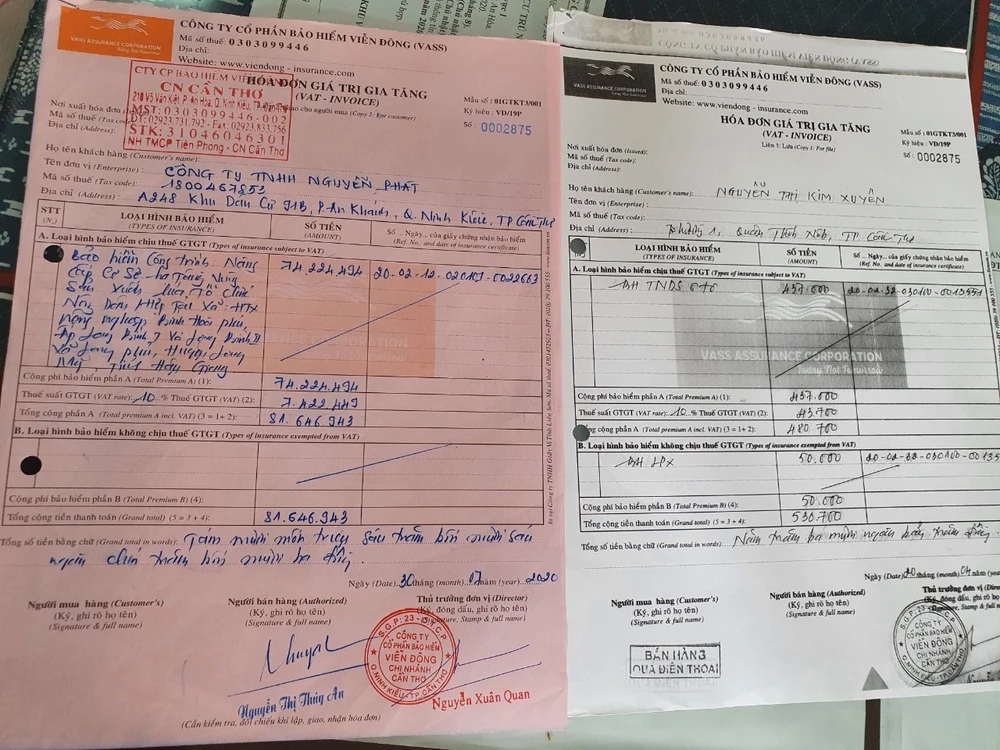 VASS ASSURANCE CORPORATION
Today Not Tomorrow
CÔNG TY CỔ PHẦN BẢO HIỂM VIỄN ĐÔNG (VASS)
Mã số thuế: 0303099446
Địa chỉ:
Website: www.viendong - insurance.com
HÓA ĐƠN GIÁ TRỊ GIA TĂNG
(VAT - INVOICE)
giao cho người mua (Copy 2: For customer)
Mẫu số: 01GTKT3/001
Ký hiệu: VD/19P
Số: 0002875
CTY CP BẢO HIỂM VIỄN ĐÔNG
CN CẦN THƠ
MST: 0303099446-002
ĐT: 02923.731.792 - Fax: 02923.833.756
STK: 31046046301
NH TMCP Tiên Phong - CN Cần Thơ
Nơi xuất hóa đơn
Mã số thuế
Địa chỉ (Address):
Họ tên khách hàng (Customer's name):
Tên đơn vị (Enterprise): CÔNG TY TNHH NGUYÊN PHÁT
Mã số thuế (Tax code): 1800467853
Địa chỉ (Address): A248 Khu Dân Cư 91B, P. An Khánh, Q. Ninh Kiều, TP Cần Thơ
STT (N.)
LOẠI HÌNH BẢO HIỂM (TYPES OF INSURANCE)
SỐ TIỀN (AMOUNT)
Số ... Ngày... của giấy chứng nhận bảo hiểm (Ref. No. and date of insurance certificate)
A. Loại hình bảo hiểm chịu thuế GTGT (Types of insurance subject to VAT)
Bảo hiểm Công trình: Nâng 74.224.494 20-02-12-020101-0022663
Cấp Cơ Sở hạ Tầng Vùng
Sản Xuất Lúa, Tổ Chức
Nông Dân Hiệp Tại Xã: HTX
Nông nghiệp Bình Hòa phú,
Ấp Long Bình I, Xã Long Bình II
Xã Long phú, Huyện Long
Mỹ, Tỉnh Hậu Giang
VASS ASSURANCE CORPORATION
Today Not Tomorrow
Cộng phí bảo hiểm phần A (Total Premium A) (1): 74.224.494
Thuế suất GTGT (VAT rate): 10 % Thuế GTGT (VAT) (2): 7.422.449
Tổng cộng phần A (Total premium A incl. VAT) (3 = 1+ 2): 81.646.943
B. Loại hình bảo hiểm không chịu thuế GTGT (Types of insurance exempted from VAT)
Cộng phí bảo hiểm phần B (Total Premium B) (4):
Tổng cộng tiền thanh toán (Grand total) (5 = 3 + 4): 81.646.943
Tổng số tiền bằng chữ (Grand total in words): Tám mươi mốt triệu sáu trăm bốn mươi sáu
ngàn chín trăm bốn mươi ba đồng.
Ngày (Date) 30 tháng (month) 07 năm (year) 2020
Người mua hàng (Customer's)
(Ký, ghi rõ họ tên)
(Signature & full name)
Người bán hàng (Authorized)
(Ký, ghi rõ họ tên)
(Signature & full name)
Thủ trưởng đơn vị (Director)
(Ký, đóng dấu, ghi rõ họ tên)
Signature, Stamp & full name)
CÔNG TY
CỔ PHẦN BẢO HIỂM
VIỄN ĐÔNG
CHI NHÁNH
CẦN THƠ
Q. NINH KIỀU-TP. CẦN THƠ
Nguyễn Thị Thúy An
Nguyễn Xuân Quan
(Cần kiểm tra, đối chiếu khi lập, giao, nhận hóa đơn)
VASS ASSURANCE CORPORATION
CÔNG TY CỔ PHẦN BẢO HIỂM VIỄN ĐÔNG (VASS)
Mã số thuế: 0303099446
Địa chỉ:
Website: www.viendong - insurance.com
HÓA ĐƠN GIÁ TRỊ GIA TĂNG
(VAT - INVOICE)
Liên 1: Lưu (Copy 1: For file)
Mẫu số: 01GTKT3/001
Ký hiệu: VD/19P
Số: 0002875
Nơi xuất hóa đơn (Issued):
Mã số thuế (Tax code):
Địa chỉ (Address):
Họ tên khách hàng (Customer's name): NGUYỄN THỊ KIM XUYẾN
Tên đơn vị (Enterprise):
Mã số thuế (Tax code):
Địa chỉ (Address):
LOẠI HÌNH BẢO HIỂM (TYPES OF INSURANCE)
SỐ TIỀN (AMOUNT)
Số ... Ngày... của giấy chứng nhận bảo hiểm (Ref. No. and date of insurance certificate)
A. Loại hình bảo hiểm chịu thuế GTGT (Types of insurance subject to VAT)
BH TNDS ô tô 437.000
VASS ASSURANCE CORPORATION
Today Not Tomorrow
Cộng phí bảo hiểm phần A (Total Premium A) (1): 437.000
Thuế suất GTGT (VAT rate): 10 % Thuế GTGT (VAT) (2): 43.700
cộng phần A (Total premium A incl. VAT) (3 = 1+ 2): 480.700
B. Loại hình bảo hiểm không chịu thuế GTGT (Types of insurance exempted from VAT)
BH LPX 50.000 20-02-32-030100-00135
Cộng phí bảo hiểm phần B (Total Premium B) (4): 50.000
Tổng cộng tiền thanh toán (Grand total) (5 = 3 + 4): 530.700
Tổng số tiền bằng chữ (Grand total in words): Năm trăm ba mươi ngàn bảy trăm đồng.
Ngày (Date) 20 tháng (month) 04 năm
Người mua hàng (Customer's)
(Ký, ghi rõ họ tên)
(Signature & full name)
Người bán hàng (Authorized)
(Ký, ghi rõ họ tên)
(Signature & full name)
Thủ trưởng đơn vị (Director)
(Ký, đóng dấu, ghi rõ họ tên)
BÁN HÀNG
QUA ĐIỆN THOẠI
CÔNG TY
CỔ PHẦN BẢO HIỂM
VIỄN ĐÔNG
CHI NHÁNH
CẦN THƠ